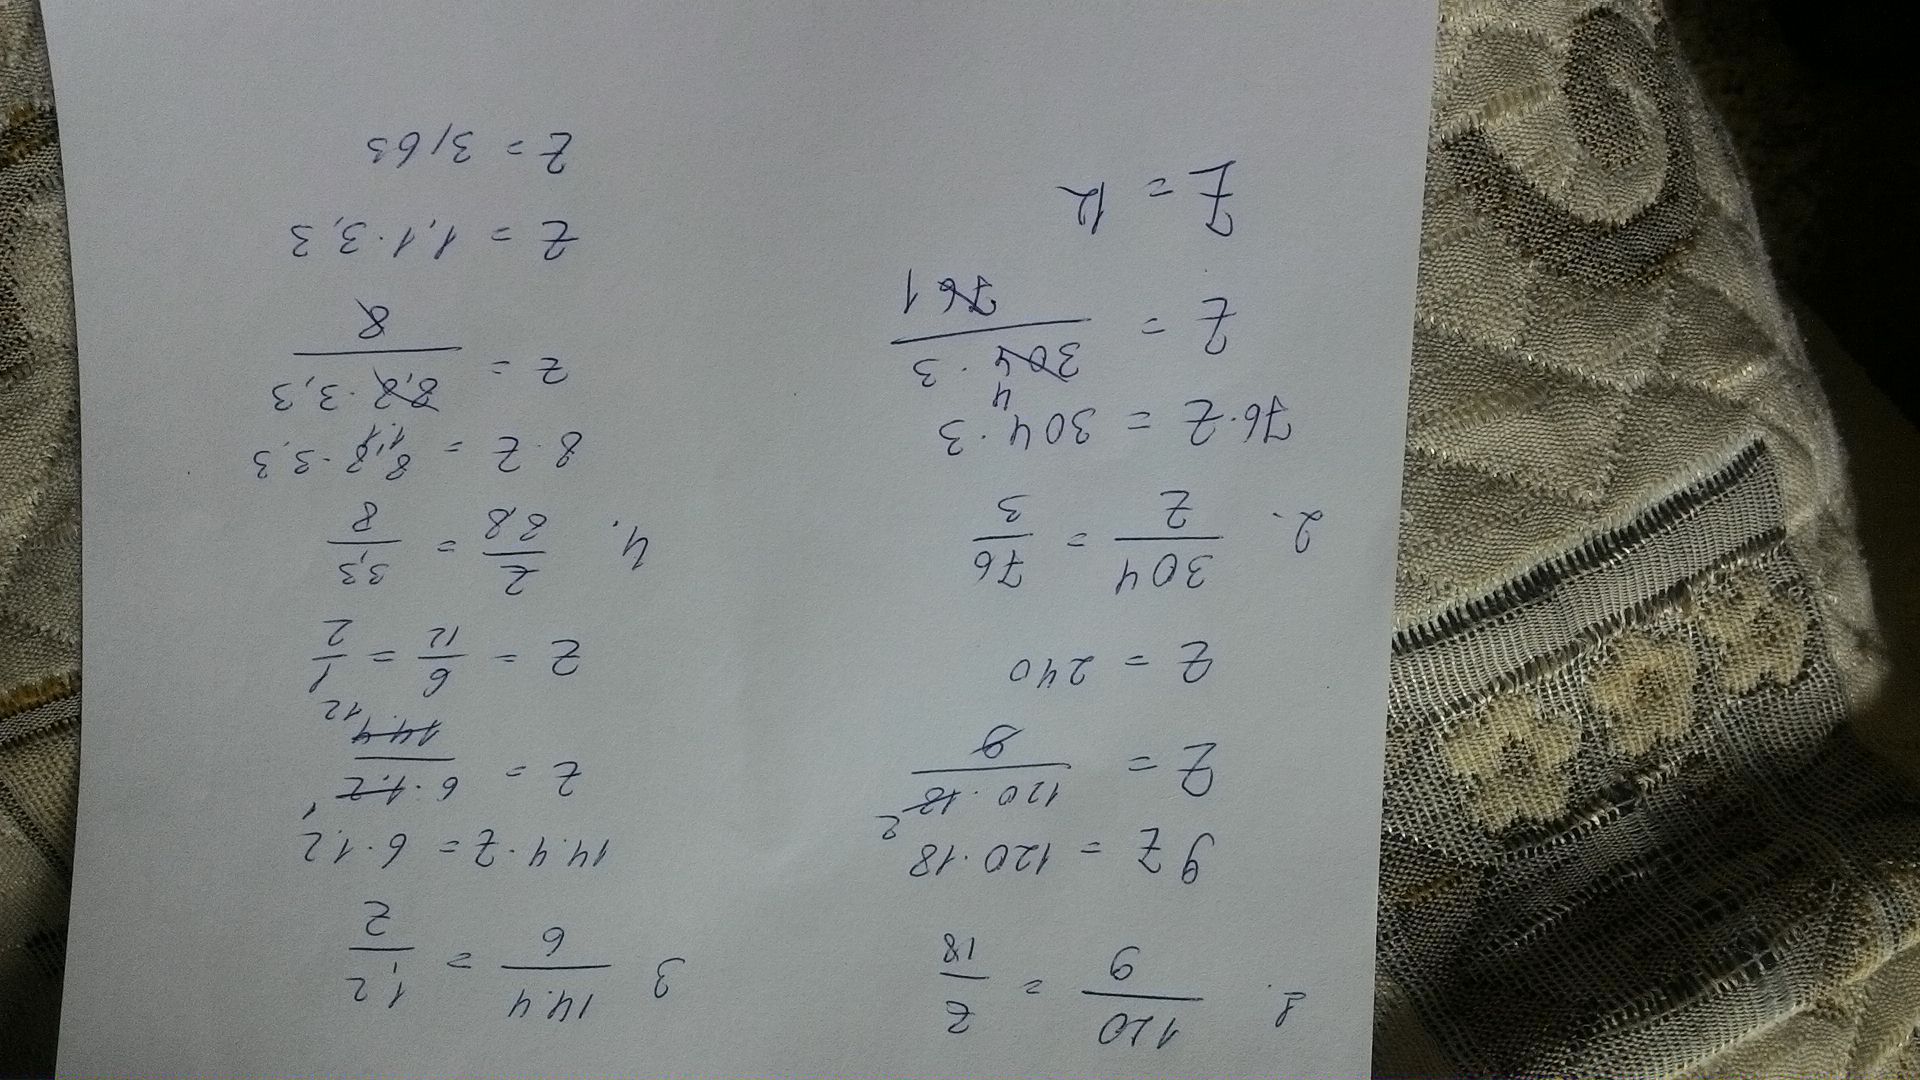 1. 120/9 = z/18
9z = 120·18
z = 120·18 2/9
z = 240
2. 304/z = 76/3
76·z = 304·3
z = 304 4·3/76 1
z = 12
3 14.4/6 = 1,2/z
14.4·z = 6·1.2
z = 6·1.2 1/14.4 12
z = 6/12 = 1/2
4. z/8.8 = 3,3/8
8·z = 8,8·3,3
z = 8,8 1,1·3,3/8
z = 1,1·3,3
z = 3,63